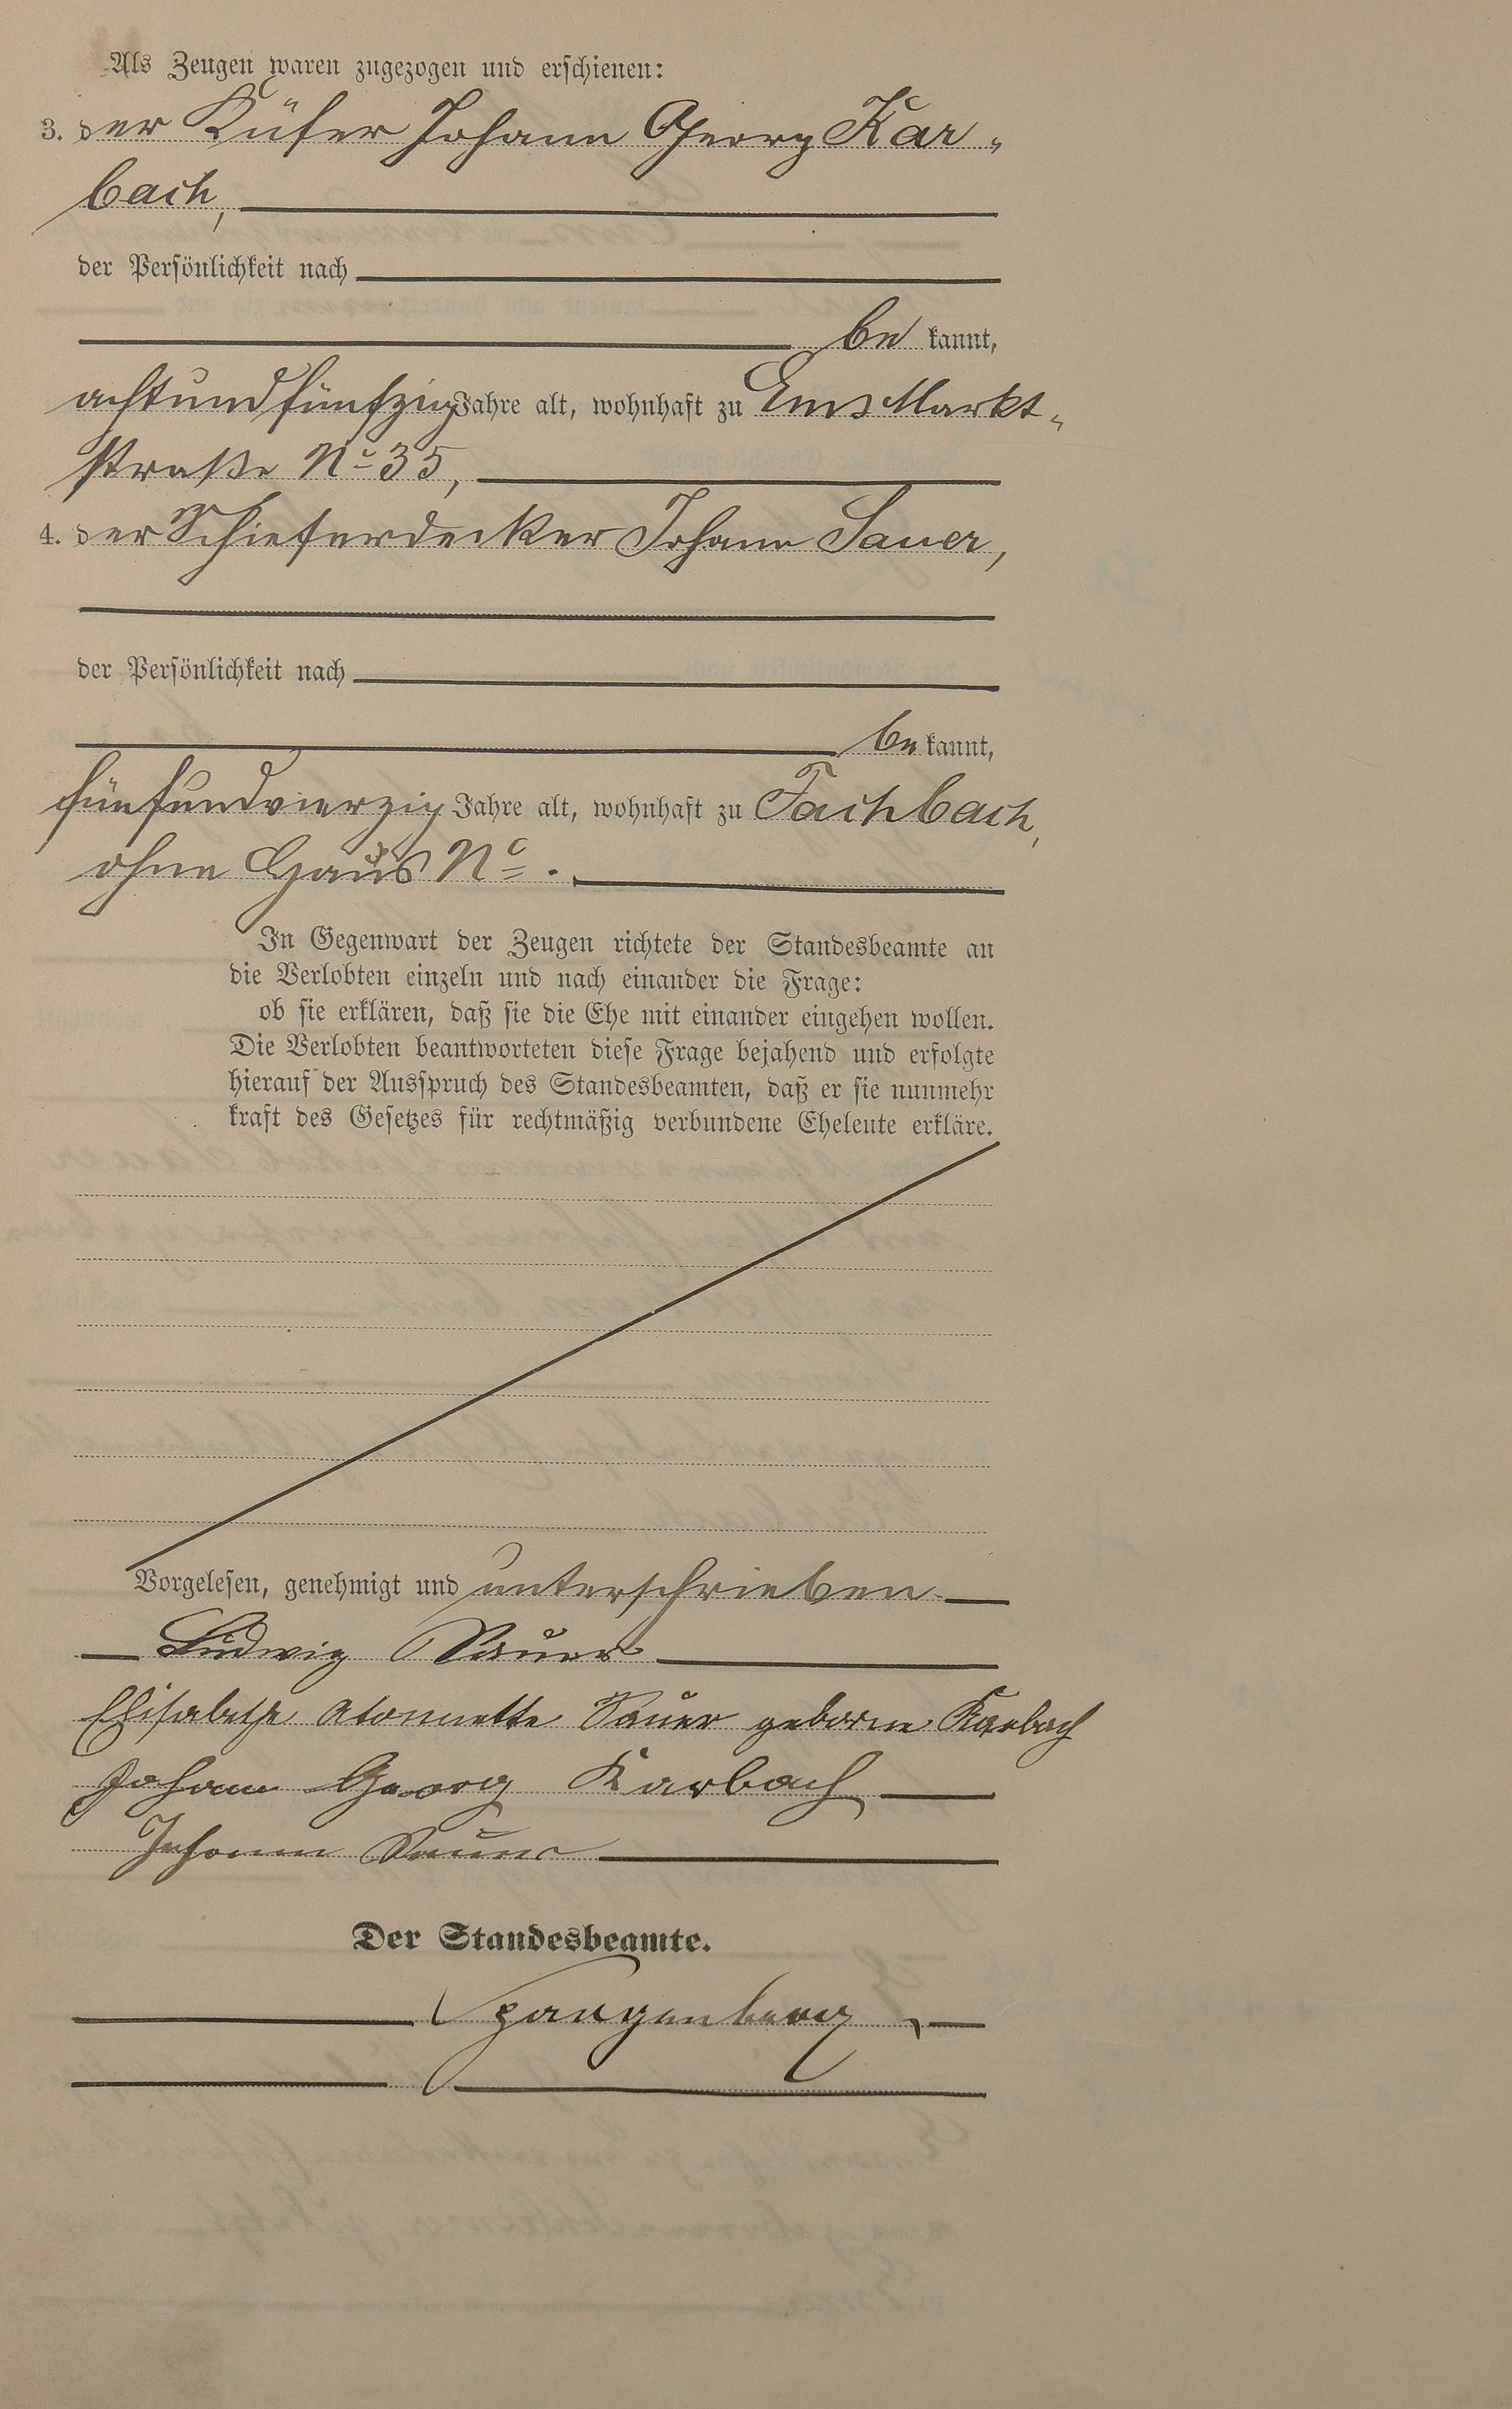 Als Zeugen waren zugezogen und erschienen:
3. der Küfer Johann Georg Kar-
bach,
der Persönlichkeit nach
be kannt,
achtundfünfzig Jahre alt, wohnhaft zu Ems Markt-
straße No 35,
4. der Schieferdecker Johann Sauer,
der Persönlichkeit nach
be kannt,
fünfundvierzig Jahre alt, wohnhaft zu Fachbach,
ohne Haus No.
In Gegenwart der Zeugen richtete der Standesbeamte an
die Verlobten einzeln und nach einander die Frage:
ob sie erklären, daß sie die Ehe mit einander eingehen wollen.
Die Verlobten beantworteten diese Frage bejahend und erfolgte
hierauf der Ausspruch des Standesbeamten, daß er sie nunmehr
kraft des Gesetzes für rechtmäßig verbundene Eheleute erkläre.
Vorgelesen, genehmigt und unterschrieben
Ludwig Sauer
Elisabethe Sauer geborne Karbach
Johann Georg Karbach
Johann Sauer
Der Standesbeamte.
Spangenberg